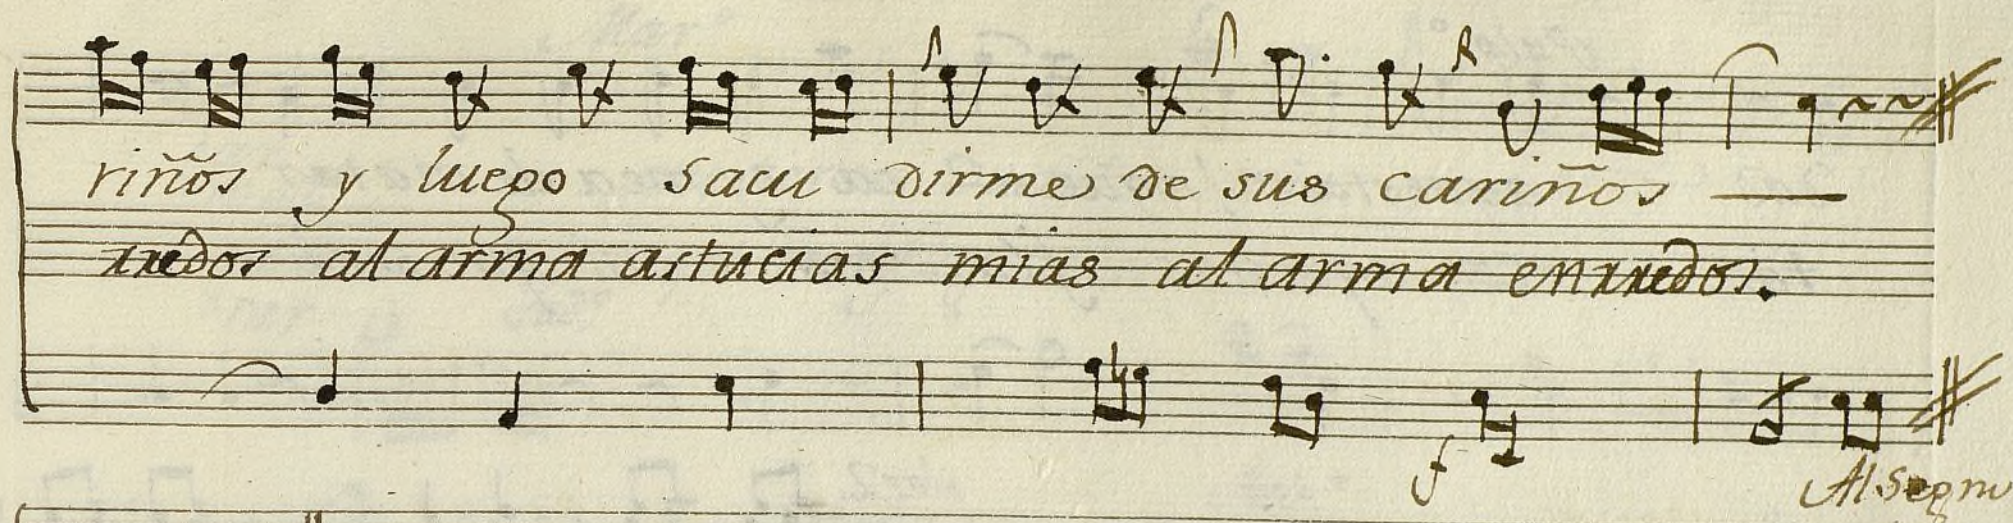 riños y luego sacu dirme de sus cariños
rredos al arma astucias mias al arma enrredos.
f
Al Segno